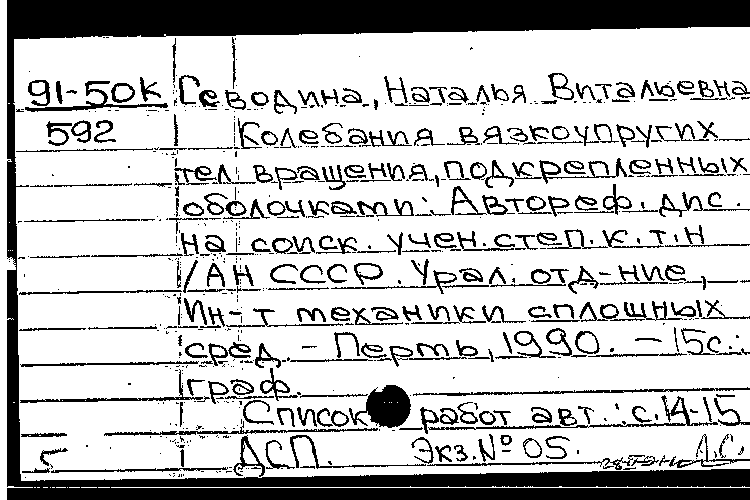 91-50К Севодина, Наталья Витальевна
592 Колебания вязкоупругих
тел вращения, подкрепленных
оболочками: Автореф. дис.
на соиск. учен. степ. к. т. н
/АН СССР. Урал. отд-ние,
Ин-т механики сплошных
сред. – Пермь, 1990. – 15с.:
граф.
Список работ авт.: с.14-15
5 ДСП. Экз.№ 05. Л.С.